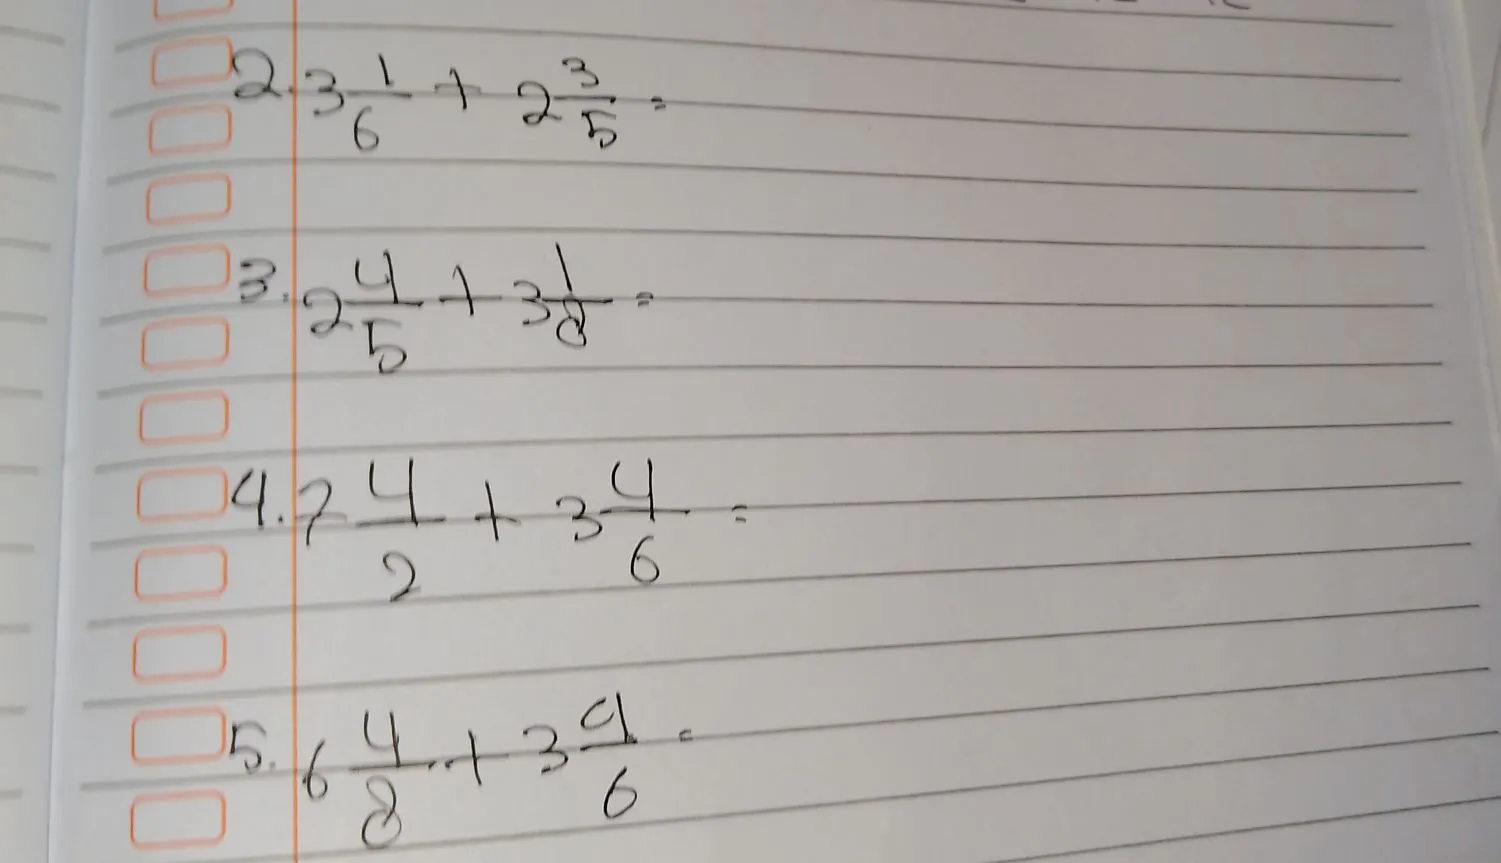 2. 3 1/6 + 2 3/5 =
3. 2 4/5 + 3 1/8 =
4. 7 4/2 + 3 4/6 =
5. 6 4/8 + 3 9/6 =